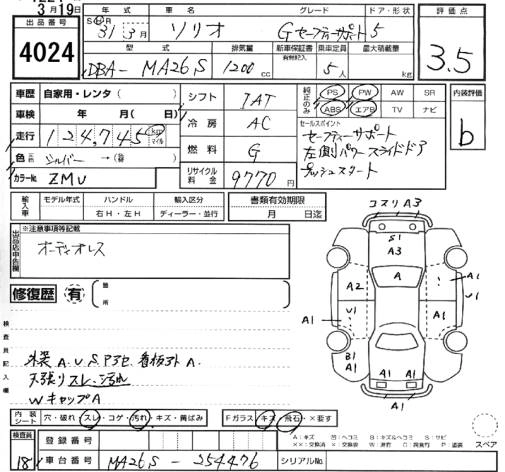 3月19日
出品番号 年式 車名 グレード ドア・形状 評価点
4024 S H R 31 3月 ソリオ Gセーフティーサポート 5 3.5
型式 排気量 新車保証書 乗車定員 最大積載量
有無記入
DBA- MA26S 1200 cc 5人 kg
車歴 自家用・レンタ( ) シフト IAT 純正のみ PS PW AW SR 内装評価
車検 年 月( 日) ABS エアB TV ナビ b
冷房 AC セールスポイント
走行 124,745 km マイル セーフティーサポート
燃料 G 左側パワースライドドア
色 シルバー →( 替) プッシュスタート
カラーNo. ZMV リサイクル料金 9770円
輸入車 モデル年式 ハンドル 輸入区分 書類有効期限
右H・左H ディーラー・並行 月 日迄
出品店申告欄 ※注意事項等記載
オーディオレス
コスリ A3
S1
A3
A
A2
A1
U1
U1
A1
A1
A1
B1
A1
A
A1
A1
修復歴 有 箇所
検査員記入欄
外装 A.U.S
天張りスレ、汚れ
WキャップA
内装シート 穴・破れ・スレ・コゲ・汚れ・キズ・黄ばみ Fガラス キズ・飛石・×要す
A:キズ U:ヘコミ B:キズ&ヘコミ S:サビ
スペア
検査員 登録番号
181 車台番号 MA26S-254476 シリアルNo.